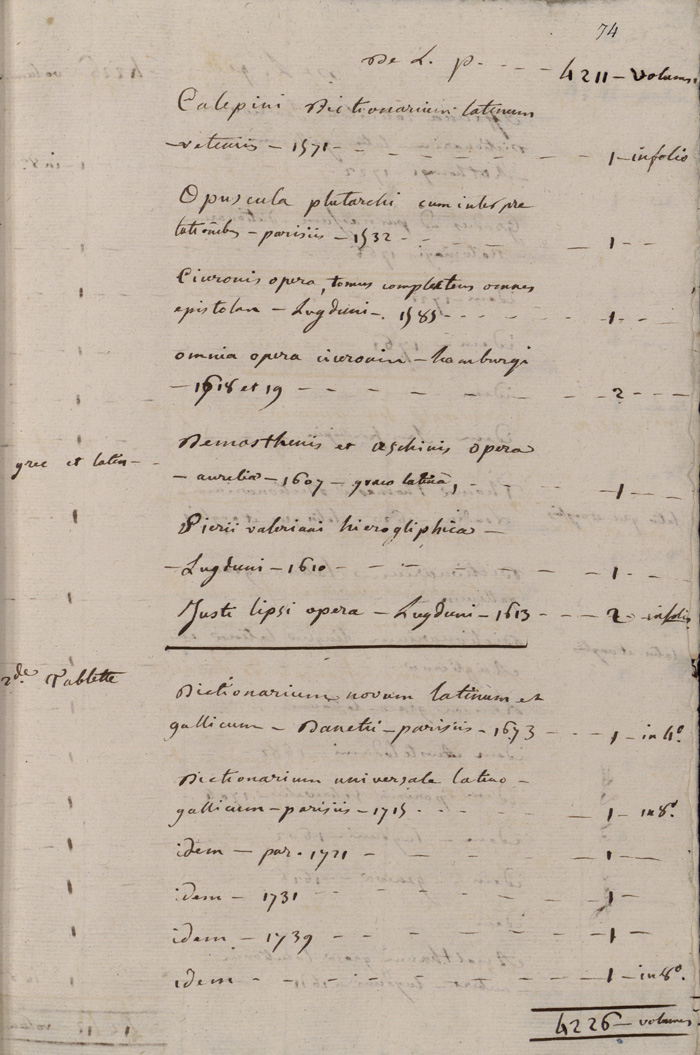 74
De L. p. - - - 4211 - volums.
Calepini Dictionarium latinum
veteris - 1571 - - - - 1 - infolio
Opuscula plutarchi cum interpre
tationibus - parisiis - 1532 - - - 1 - -
Ciceronis opera, tomus complectens omnes
epistolas - Lugduni - 1585 - - - - 1 - -
omnia opera ciceronis - hamburgi
- 1618 et 19 - - - - - 2 - - -
grec et latin - - Demosthenis et æschinis opera
- aurelia - 1607 - græco latina, - - 1 - -
Pierii valeriani hierogliphica -
- Lugduni - 1610 - - - - 1 - -
Justi lipsi opera - Lugduni - 1613 - - - 2 - infolio
2de. Tablette
Dictionarium novum latinum et
gallicum - Danetii - parisiis - 1673 - - - 1 - in 4º.
Dictionarium universale latino -
gallicum - parisiis - 1715 - - - 1 - in 8º.
idem - par. 1721 - - - - 1 - -
idem - 1731 - - - - 1 - -
idem - 1739 - - - - 1 - -
idem - - - - - 1 - in 8º.
4226 - volumes.